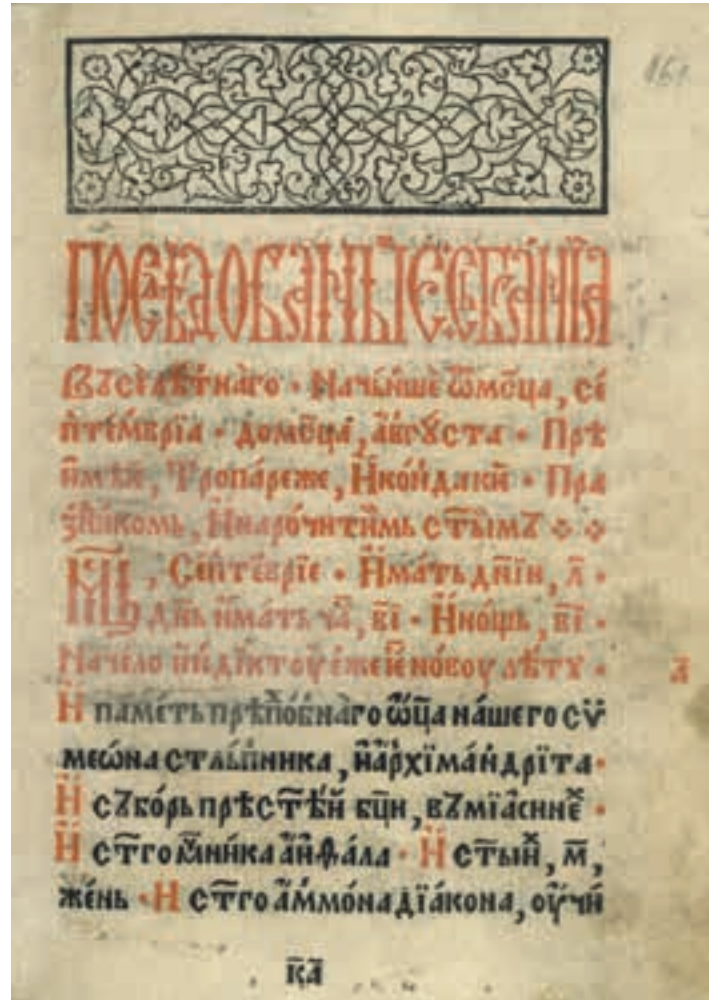 161
ПОСЛѢДОВАНЇЕ СЪБРАНЇА
Въселѣ́тнаго · Начьнше ѿмⷭ҇ца, се
пте́мврїа · домⷭ҇ца, а҆́вгꙋста · Прѣ
Тропа́реже, И҆ко́ндаки · Пра
здникомь, И҆наро́читимь ст҃ы́мъ
Мⷭ҇ць, Септе́врїе · И҆ма́ть дн҃їи, л҃ ·
дн҃ь и҆ма́ть ча, в҃і · И҆но́щь, в҃і ·
Начело и҆ндїктоу є҆́же є҆сть новоу лѣ́тꙋ · а҃
И҆ паме́ть прѣпⷣо́бнаго ѿц҃а на́шего сѵ
меѡ́на стль́пника, и҆а҆рхїма́ндрїта ·
И҆ съборь прѣст҃ѣ́й бц҃и, въмїа́синеⷯ ·
И҆ ст҃го мⷱ҇ни́ка а҆иѳа́ла · И҆ ст҃ы́иⷯ, м҃,
же́нь · И҆ ст҃го а҆ммо́на дїа́кона, оу҆чи́
к҃а